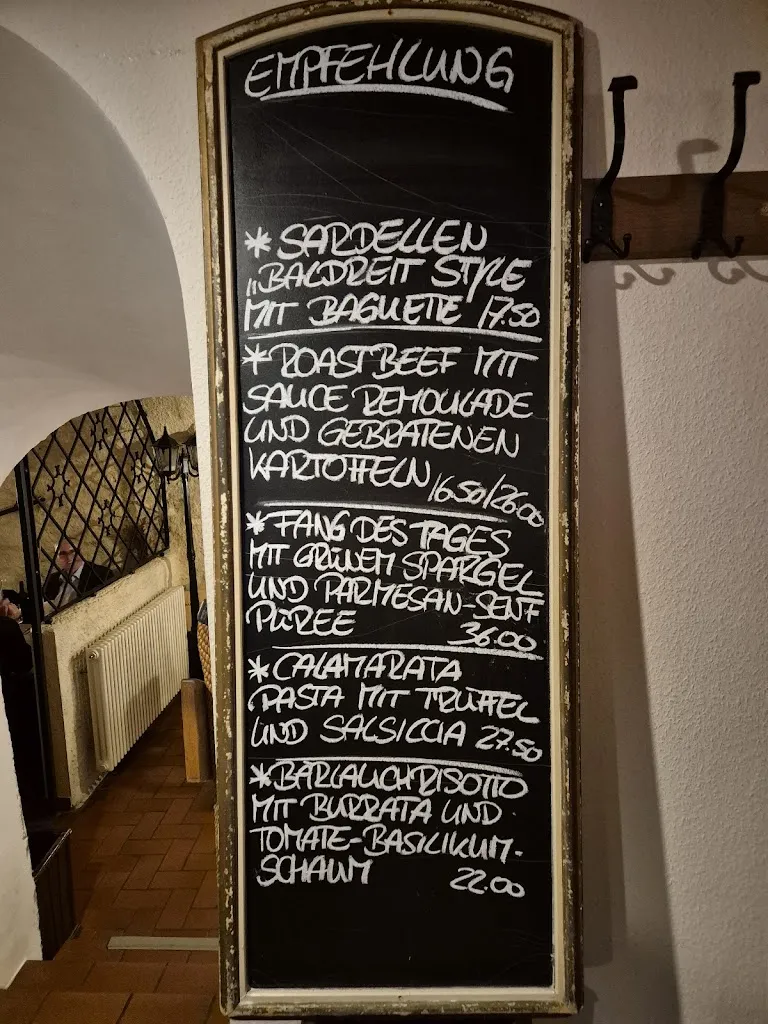 EMPFEHLUNG
* SARDELLEN
„BALDREIT STYLE
MIT BAGUETTE 17.50
* ROASTBEEF MIT
SAUCE REMOULADE
UND GEBRATENEN
KARTOFFELN 16.50/26.00
* FANG DES TAGES
MIT GRÜNEM SPARGEL
UND PARMESAN-SENF
PÜREE 36.00
* CALAMARATA
PASTA MIT TRÜFFEL
UND SALSICCIA 27.50
* BÄRLAUCHRISOTTO
MIT BURRATA UND
TOMATE-BASILIKUM-
SCHAUM 22.00